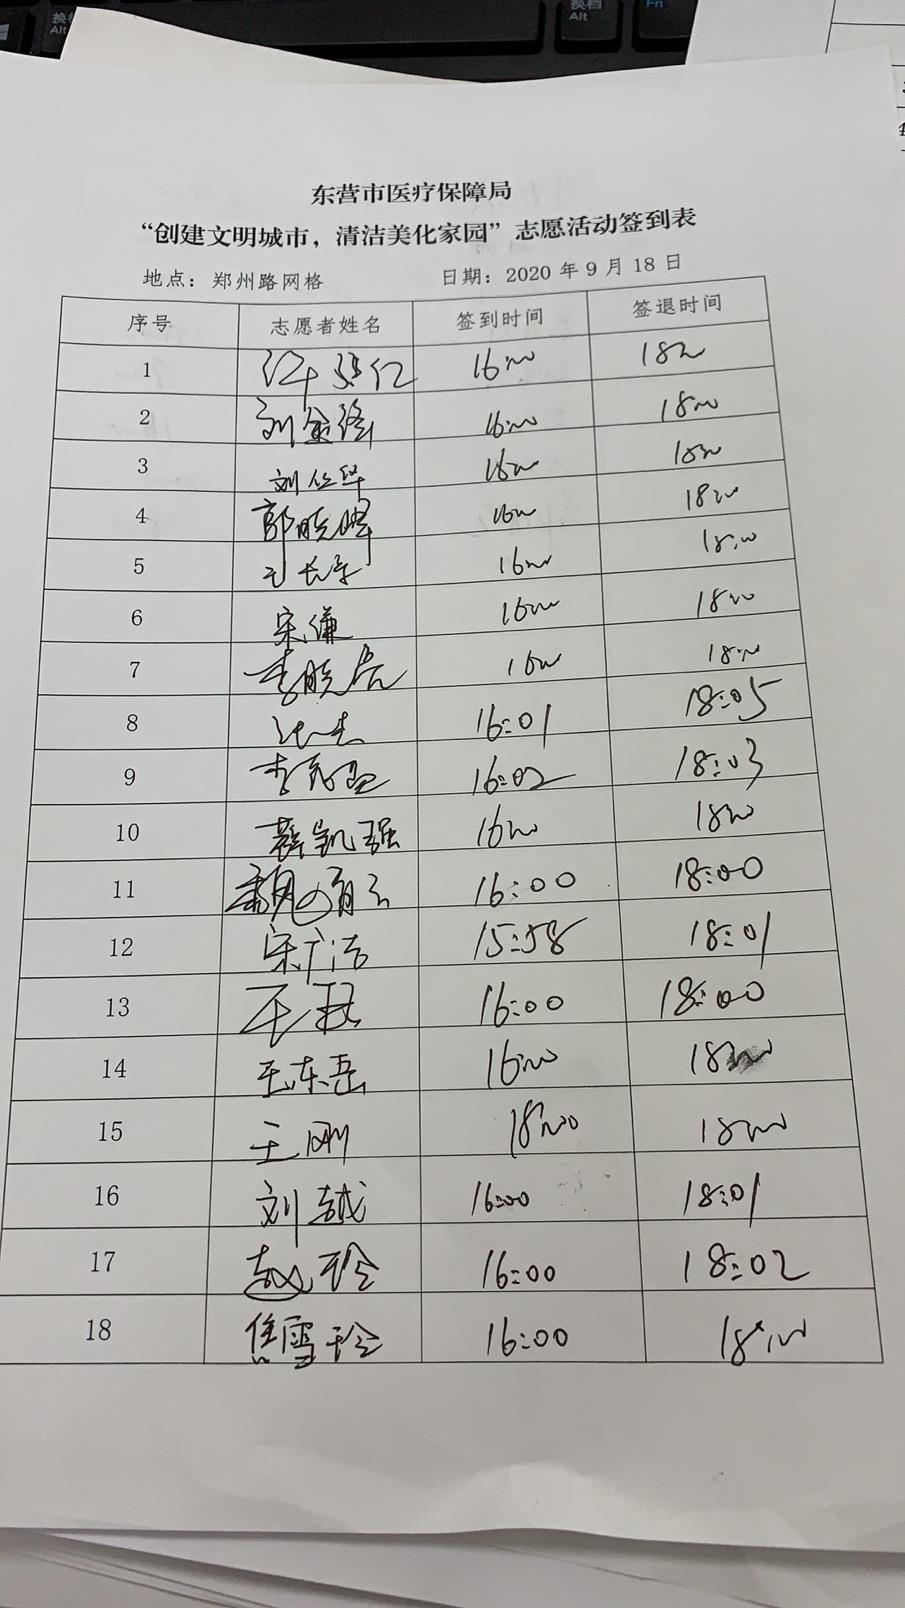 东营市医疗保障局
“创建文明城市，清洁美化家园”志愿活动签到表
地点：郑州路网格 日期：2020 年 9 月 18 日
序号 志愿者姓名 签到时间 签退时间
1 16:00 18:00
2 刘金 16:00 18:00
3 刘仁华 16:00 18:00
4 郭晓峰 16:00 18:00
5 16:00 18:00
6 宋谦 16:00 18:00
7 李晓 16:00 18:00
8 16:01 18:05
9 李 16:02 18:03
10 薛凯强 16:00 18:00
11 16:00 18:00
12 宋广洁 15:58 18:01
13 16:00 18:00
14 王东岳 16:00 18:00
15 王刚 18:00 18:00
16 刘越 16:00 18:01
17 赵玲 16:00 18:02
18 焦雪玲 16:00 18:00